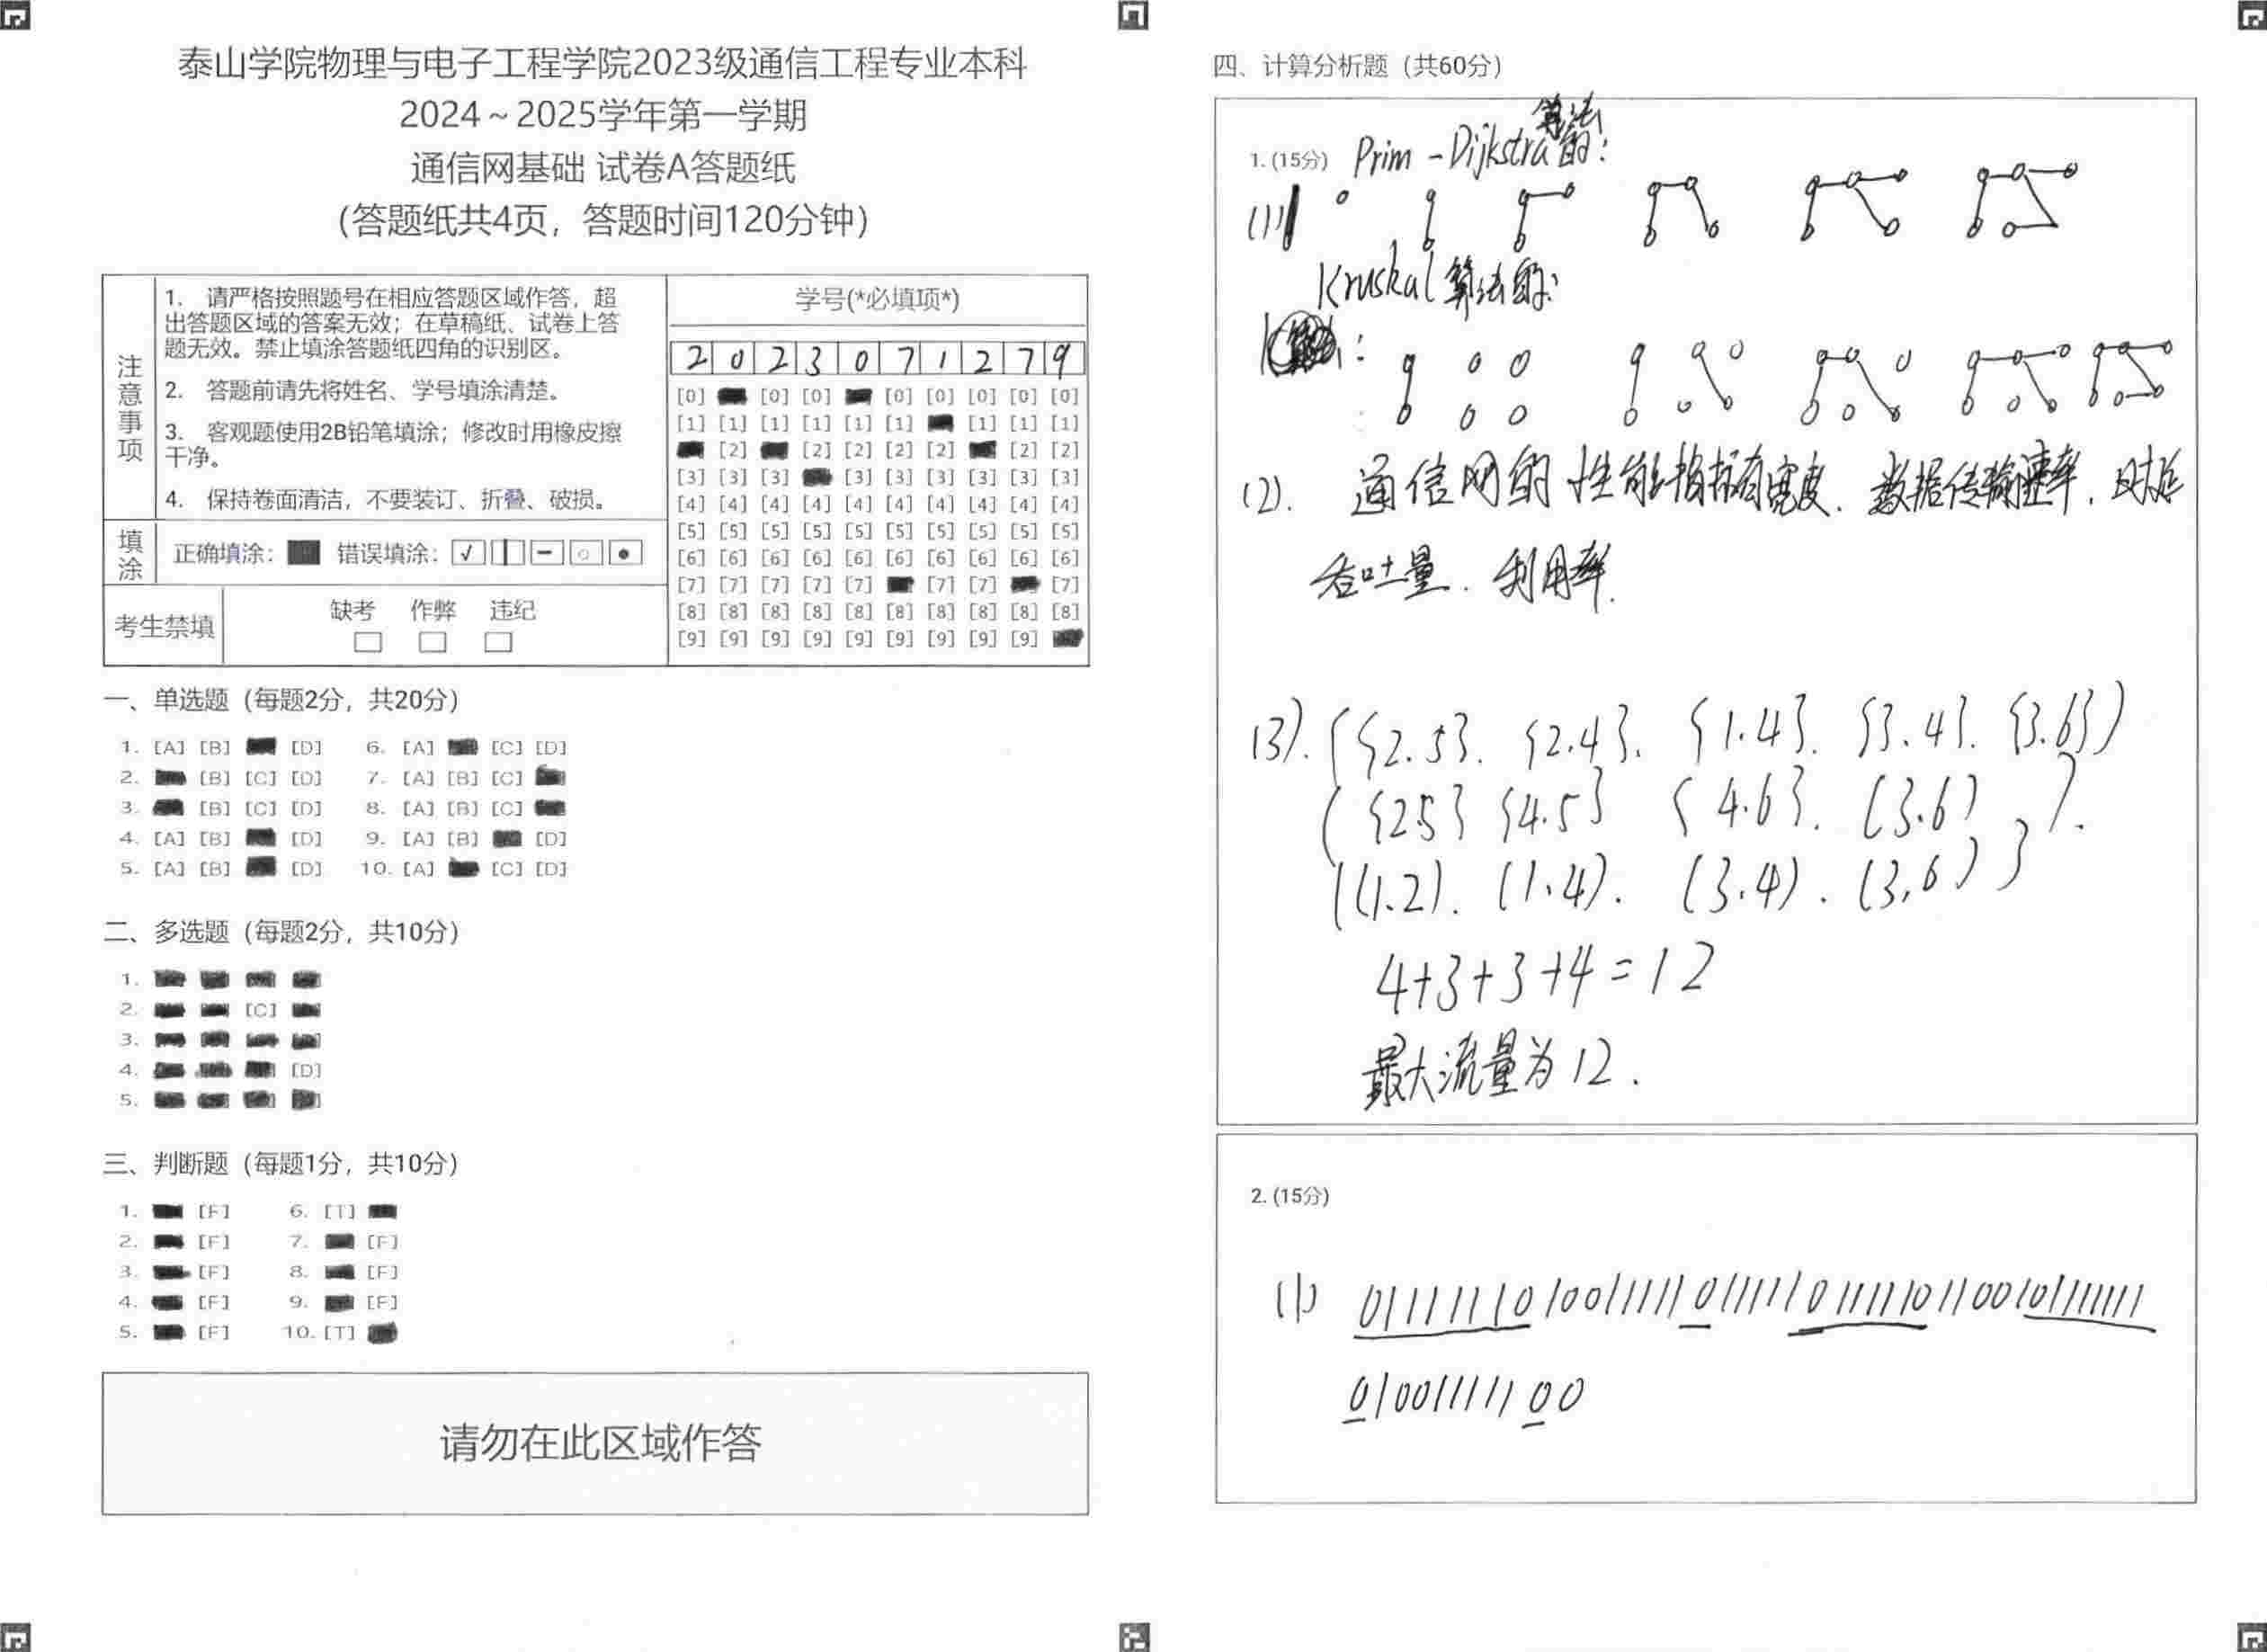 泰山学院物理与电子工程学院2023级通信工程专业本科
2024～2025学年第一学期
通信网基础 试卷A答题纸
（答题纸共4页，答题时间120分钟）
注意事项
1. 请严格按照题号在相应答题区域作答，超
出答题区域的答案无效；在草稿纸、试卷上答
题无效。禁止填涂答题纸四角的识别区。
2. 答题前请先将姓名、学号填涂清楚。
3. 客观题使用2B铅笔填涂；修改时用橡皮擦
干净。
4. 保持卷面清洁，不要装订、折叠、破损。
填涂
正确填涂： 错误填涂：
考生禁填
缺考 作弊 违纪
学号(*必填项*)
2 0 2 3 0 7 1 2 7 9
[0] [0] [0] [0] [0] [0] [0] [0]
[1] [1] [1] [1] [1] [1] [1] [1] [1]
[2] [2] [2] [2] [2] [2] [2]
[3] [3] [3] [3] [3] [3] [3] [3] [3]
[4] [4] [4] [4] [4] [4] [4] [4] [4] [4]
[5] [5] [5] [5] [5] [5] [5] [5] [5] [5]
[6] [6] [6] [6] [6] [6] [6] [6] [6] [6]
[7] [7] [7] [7] [7] [7] [7] [7]
[8] [8] [8] [8] [8] [8] [8] [8] [8] [8]
[9] [9] [9] [9] [9] [9] [9] [9] [9]
一、单选题（每题2分，共20分）
1. [A] [B] [D] 6. [A] [C] [D]
2. [B] [C] [D] 7. [A] [B] [C]
3. [B] [C] [D] 8. [A] [B] [C]
4. [A] [B] [D] 9. [A] [B] [D]
5. [A] [B] [D] 10. [A] [C] [D]
二、多选题（每题2分，共10分）
1.
2. [C]
3.
4. [D]
5.
三、判断题（每题1分，共10分）
1. [F] 6. [T]
2. [F] 7. [F]
3. [F] 8. [F]
4. [F] 9. [F]
5. [F] 10. [T]
请勿在此区域作答
四、计算分析题（共60分）
1. (15分) Prim-Dijkstra算法的：
(1)
Kruskal算法的：
(2). 通信网的性能指标有宽度. 数据传输速率. 时延
吞吐量. 利用率.
(3). {{2.5}. {2.4}. {1.4}. {3.4}. {3.6})
( {2.5} {4.5} {4.6}. (3.6) ).
((1.2). (1.4). (3.4). (3,6) }
4+3+3+4=12
最大流量为12.
2. (15分)
(1)